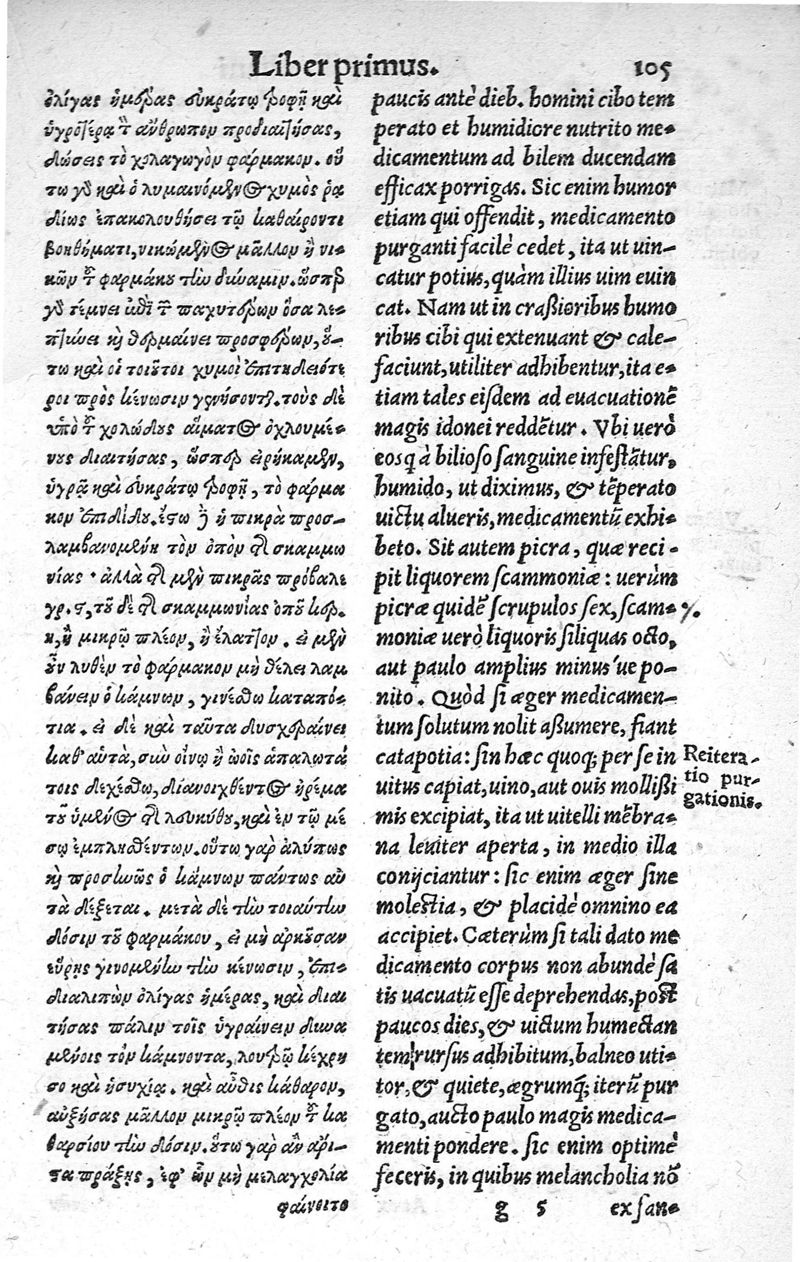 Liber primus. 105
ὀλίγας ἡμέρας εὐκράτῳ τροφῇ καὶ
ὑγροτέρᾳ τὸν ἄνθρωπον προδιαιτήσας,
δώσεις τὸ χολαγωγὸν φάρμακον. οὕ
τω γὰρ καὶ ὁ λυμαινόμενος χυμὸς ῥᾳ
δίως ἐπακολουθήσει τῷ καθαίροντι
βοηθήματι, νικώμενος μᾶλλον ἢ νι-
κῶν τοῦ φαρμάκου τὴν δύναμιν. ὥσπερ
γὰρ τέμνει ἐπὶ τῶν παχυτέρων ὅσα λε-
πτύνει καὶ θερμαίνει προσφέρων, οὕ-
τω καὶ οἱ τοιοῦτοι χυμοὶ ἐπιτηδειότε
ροι πρὸς κένωσιν γενήσονται. τοὺς δὲ
ὑπὸ τοῦ χολώδους αἵματος ὀχλουμέ-
νους διαιτήσας, ὥσπερ εἰρήκαμεν,
ὑγρᾷ καὶ εὐκράτῳ τροφῇ, τὸ φάρμα
κον ἐπιδίδου. ἔστω δὲ ἡ πικρὰ προσ-
λαμβανομένη τὸν ὀπὸν τῆς σκαμμω
νίας. ἀλλὰ τῆς μὲν πικρᾶς πρόβαλε
γρ. ϛ, τοῦ δὲ τῆς σκαμμωνίας ὀποῦ κερ.
η, ἢ μικρῷ πλέον, ἢ ἔλαττον. εἰ μὲν
οὖν λυθὲν τὸ φάρμακον μὴ θέλει λαμ
βάνειν ὁ κάμνων, γινέσθω καταπό-
τια. εἰ δὲ καὶ ταῦτα δυσχεραίνει
καθ' αὑτὰ, σὺν οἴνῳ ἢ ὠοῖς ἁπαλωτά
τοις δεχέσθω, διανοιχθέντος ἠρέμα
τοῦ ὑμένος τῆς λεκύθου, καὶ ἐν τῷ μέ
σῳ ἐμπλησθέντων. οὕτω γὰρ ἀλύπως
καὶ προσηνῶς ὁ κάμνων πάντως αὐ
τὰ δέξεται. μετὰ δὲ τὴν τοιαύτην
δόσιν τοῦ φαρμάκου, εἰ μὴ ἀρκοῦσαν
εὕρῃς γινομένην τὴν κένωσιν, ἐπι-
διαλιπὼν ὀλίγας ἡμέρας, καὶ διαι
τήσας πάλιν τοῖς ὑγραίνειν δυνα
μένοις τὸν κάμνοντα, λουτρῷ κέχρη
σο καὶ ἡσυχίᾳ. καὶ αὖθις κάθαρον,
αὐξήσας μᾶλλον μικρῷ πλέον τοῦ κα
θαρσίου τὴν δόσιν. οὕτω γὰρ ἂν ἄρι-
στα πράξῃς, ἐφ' ὧν μὴ μελαγχολία
φαίνοιτο
paucis antè dieb. homini cibo tem
perato et humidiore nutrito me-
dicamentum ad bilem ducendam
efficax porrigas. Sic enim humor
etiam qui offendit, medicamento
purganti facilè cedet, ita ut uin-
catur potius, quàm illius uim euin
cat. Nam ut in craßioribus humo
ribus cibi qui extenuant & cale-
faciunt, utiliter adhibentur, ita e-
tiam tales eisdem ad euacuationẽ
magis idonei reddẽtur. Vbi uerò
eosq̃ à bilioso sanguine infestãtur,
humido, ut diximus, & tẽperato
uictu alueris, medicamentũ exhi-
beto. Sit autem picra, quæ reci-
pit liquorem scammoniæ: uerùm
picræ quidẽ scrupulos sex, scam-
moniæ uerò liquoris siliquas octo,
aut paulo amplius minus'ue po-
nito. Quòd si æger medicamen-
tum solutum nolit aßumere, fiant
catapotia: sin hæc quoq; per se in
uitus capiat, uino, aut ouis mollißi
mis excipiat, ita ut uitelli mẽbra-
na leniter aperta, in medio illa
conijciantur: sic enim æger sine
molestia, & placidè omnino ea
accipiet. Cæterùm si tali dato me
dicamento corpus non abundè sa
tis uacuatũ esse deprehendas, post
paucos dies, & uictum humectan
tem rursus adhibitum, balneo uti-
tor, & quiete, ægrumq; iterũ pur
gato, aucto paulo magis medica-
menti pondere. sic enim optimè
feceris, in quibus melancholia nõ
g 5 ex san-
Reitera-
tio pur-
gationis.